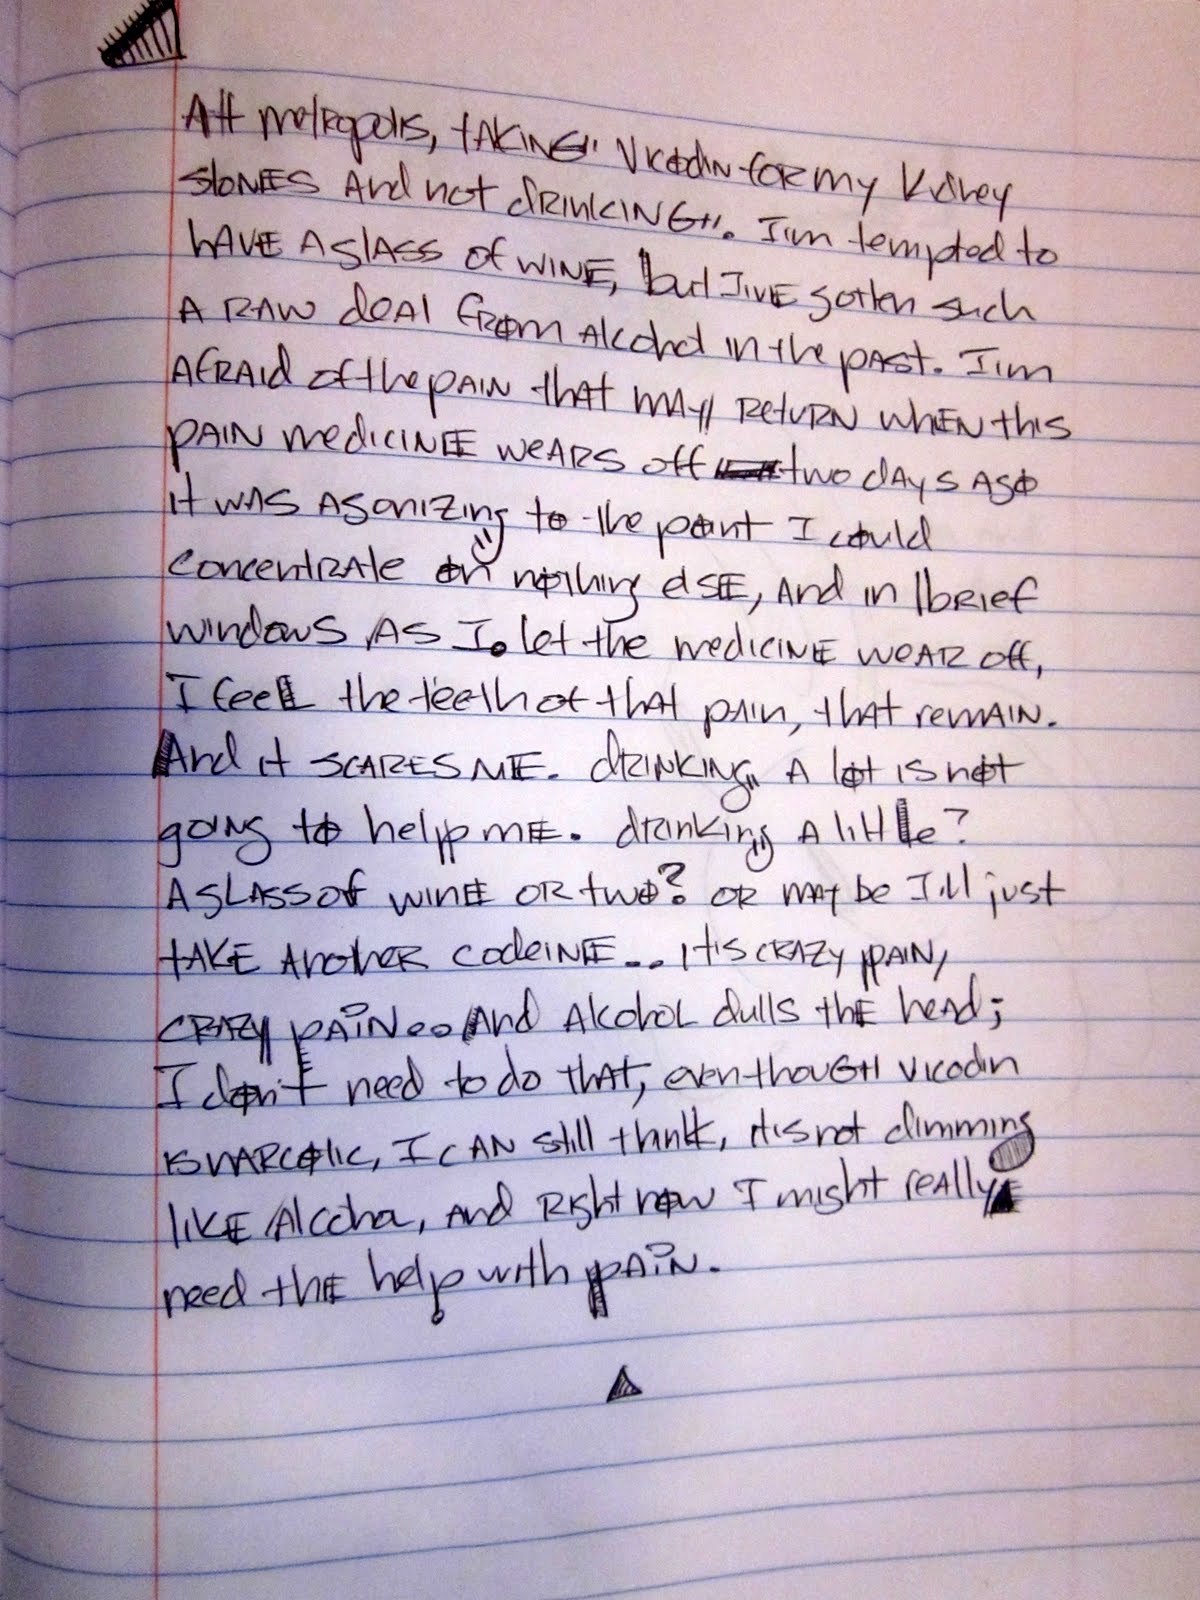 Att metropolis, taking Vicodin for my Kidney
stones and not drinking. I'm tempted to
have a glass of wine, but I've gotten such
a raw deal from alcohol in the past. I'm
afraid of the pain that may return when this
pain medicine wears off two days ago
it was agonizing to the point I could
concentrate on nothing else, and in brief
windows as I let the medicine wear off,
I feel the teeth of that pain, that remain.
And it scares me. drinking a lot is not
going to help me. drinking a little?
A glass of wine or two? or maybe I'll just
take another codeine... it's crazy pain,
crazy pain.. And Alcohol dulls the head;
I don't need to do that, even though vicodin
is narcotic, I can still think, it's not dimming
like Alcohol, and Right now I might really
need the help with pain.